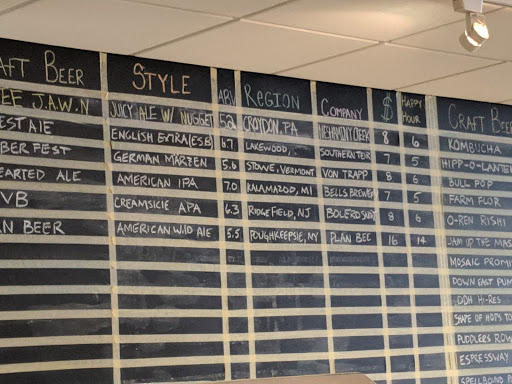 AFT BEER STYLE ABV REGION COMPANY $ HAPPY HOUR CRAFT BEE
EE J.A.W.N JUICY ALE W/ NUGGET 5.2 CROYDON, PA NESHAMINY CREEK 8 6 KOMBUCHA
EST ALE ENGLISH EXTRA (ESB) 6.7 LAKEWOOD, SOUTHERN TIER 7 5 HIPP-O-LANTER
BERFEST GERMAN MÄRZEN 5.6 STOWE, VERMONT VON TRAPP 8 6 BULL POP
EARTED ALE AMERICAN IPA 7.0 KALAMAZOO, MI BELLS BREWER 7 5 FARM FLOR
VB CREAMSICLE APA 6.3 RIDGEFIELD, NJ BOLERO SNORT 8 6 O-REN RISHI
N BEER AMERICAN WILD ALE 5.5 POUGHKEEPSIE, NY PLAN BEE 16 14 JAM UP THE MAS
MOSAIC PROMI
DOWN EAST PUM
DDH HI-RES
SHAPE OF HOPS TO
PUDDLERS ROW
ESPRESSWAY
SPELLBOUND P